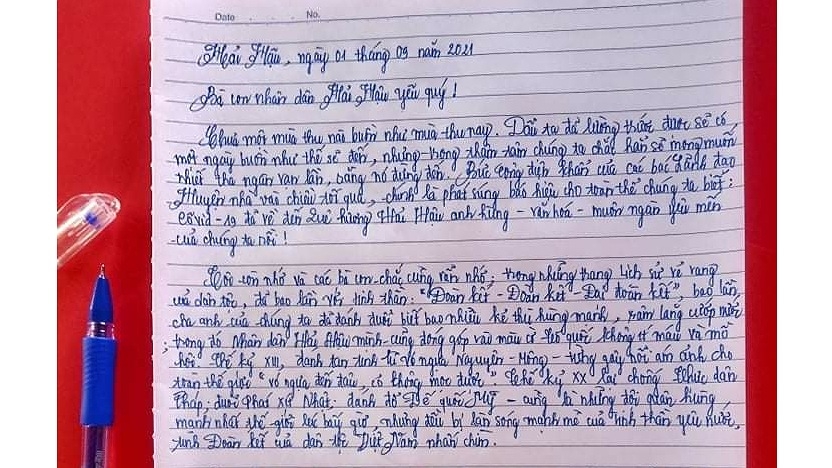 Date . . . . No.
Hải Hậu, ngày 01 tháng 09 năm 2021
Bà con nhân dân Hải Hậu yêu quý!
Chưa một mùa thu nào buồn như mùa thu nay. Dẫu ta đã lường trước được sẽ có
một ngày buồn như thế sẽ đến, nhưng trong thâm tâm chúng ta chắc hẳn sẽ mong muốn
nhiệt thà ngàn vạn lần, rằng nó đừng đến. Bức công điện khẩn của các bác Lãnh đạo
Huyện nhà vào chiều tối qua, chính là phát súng báo hiệu cho toàn thể chúng ta biết:
Covid-19 đã về đến Quê hương Hải Hậu anh hùng - văn hóa - muôn ngàn yêu mến
của chúng ta rồi!
Tôi còn nhớ và các bà con chắc cũng vẫn nhớ: trong những trang Lịch sử vẻ vang
của dân tộc, đã bao lần với tinh thần: "Đoàn kết - Đoàn kết - Đại đoàn kết" bao lần
cha anh của chúng ta đã đánh đuổi biết bao nhiêu kẻ thù hùng mạnh, xâm lăng cướp nước
; trong đó Nhân dân Hải Hậu mình cũng đóng góp vào màu cờ Tổ quốc không ít máu và mồ
hôi. Thế kỷ XIII, đánh tan tinh tí vó ngựa Nguyên - Mông - từng gây nỗi ám ảnh cho
toàn thế giới "vó ngựa đến đâu, cỏ không mọc được". Thế kỷ XX lại chống Thực dân
Pháp; đuổi Phát xít Nhật; đánh đổ Đế quốc Mỹ - cũng là những đội quân hùng
mạnh nhất thế giới lúc bấy giờ, nhưng đều bị làn sóng mạnh mẽ của tinh thần yêu nước,
tình Đoàn kết của dân tộc Việt Nam nhấn chìm.